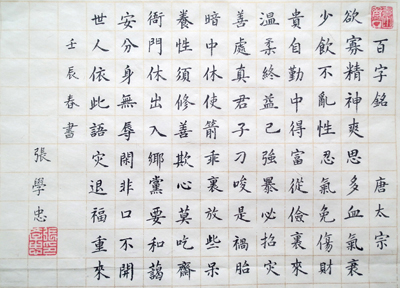 百字銘 唐太宗
欲寡精神爽思多血氣衰
少飲不亂性忍氣免傷財
貴自勤中得富從儉裏來
温柔終益己強暴必招灾
善處真君子刁唆是禍胎
暗中休使箭乖裏放些呆
養性須修善欺心莫吃齋
衙門休出入鄉黨要和藹
安分身無辱閑非口不開
世人依此語灾退福重來
壬辰春書
張學忠